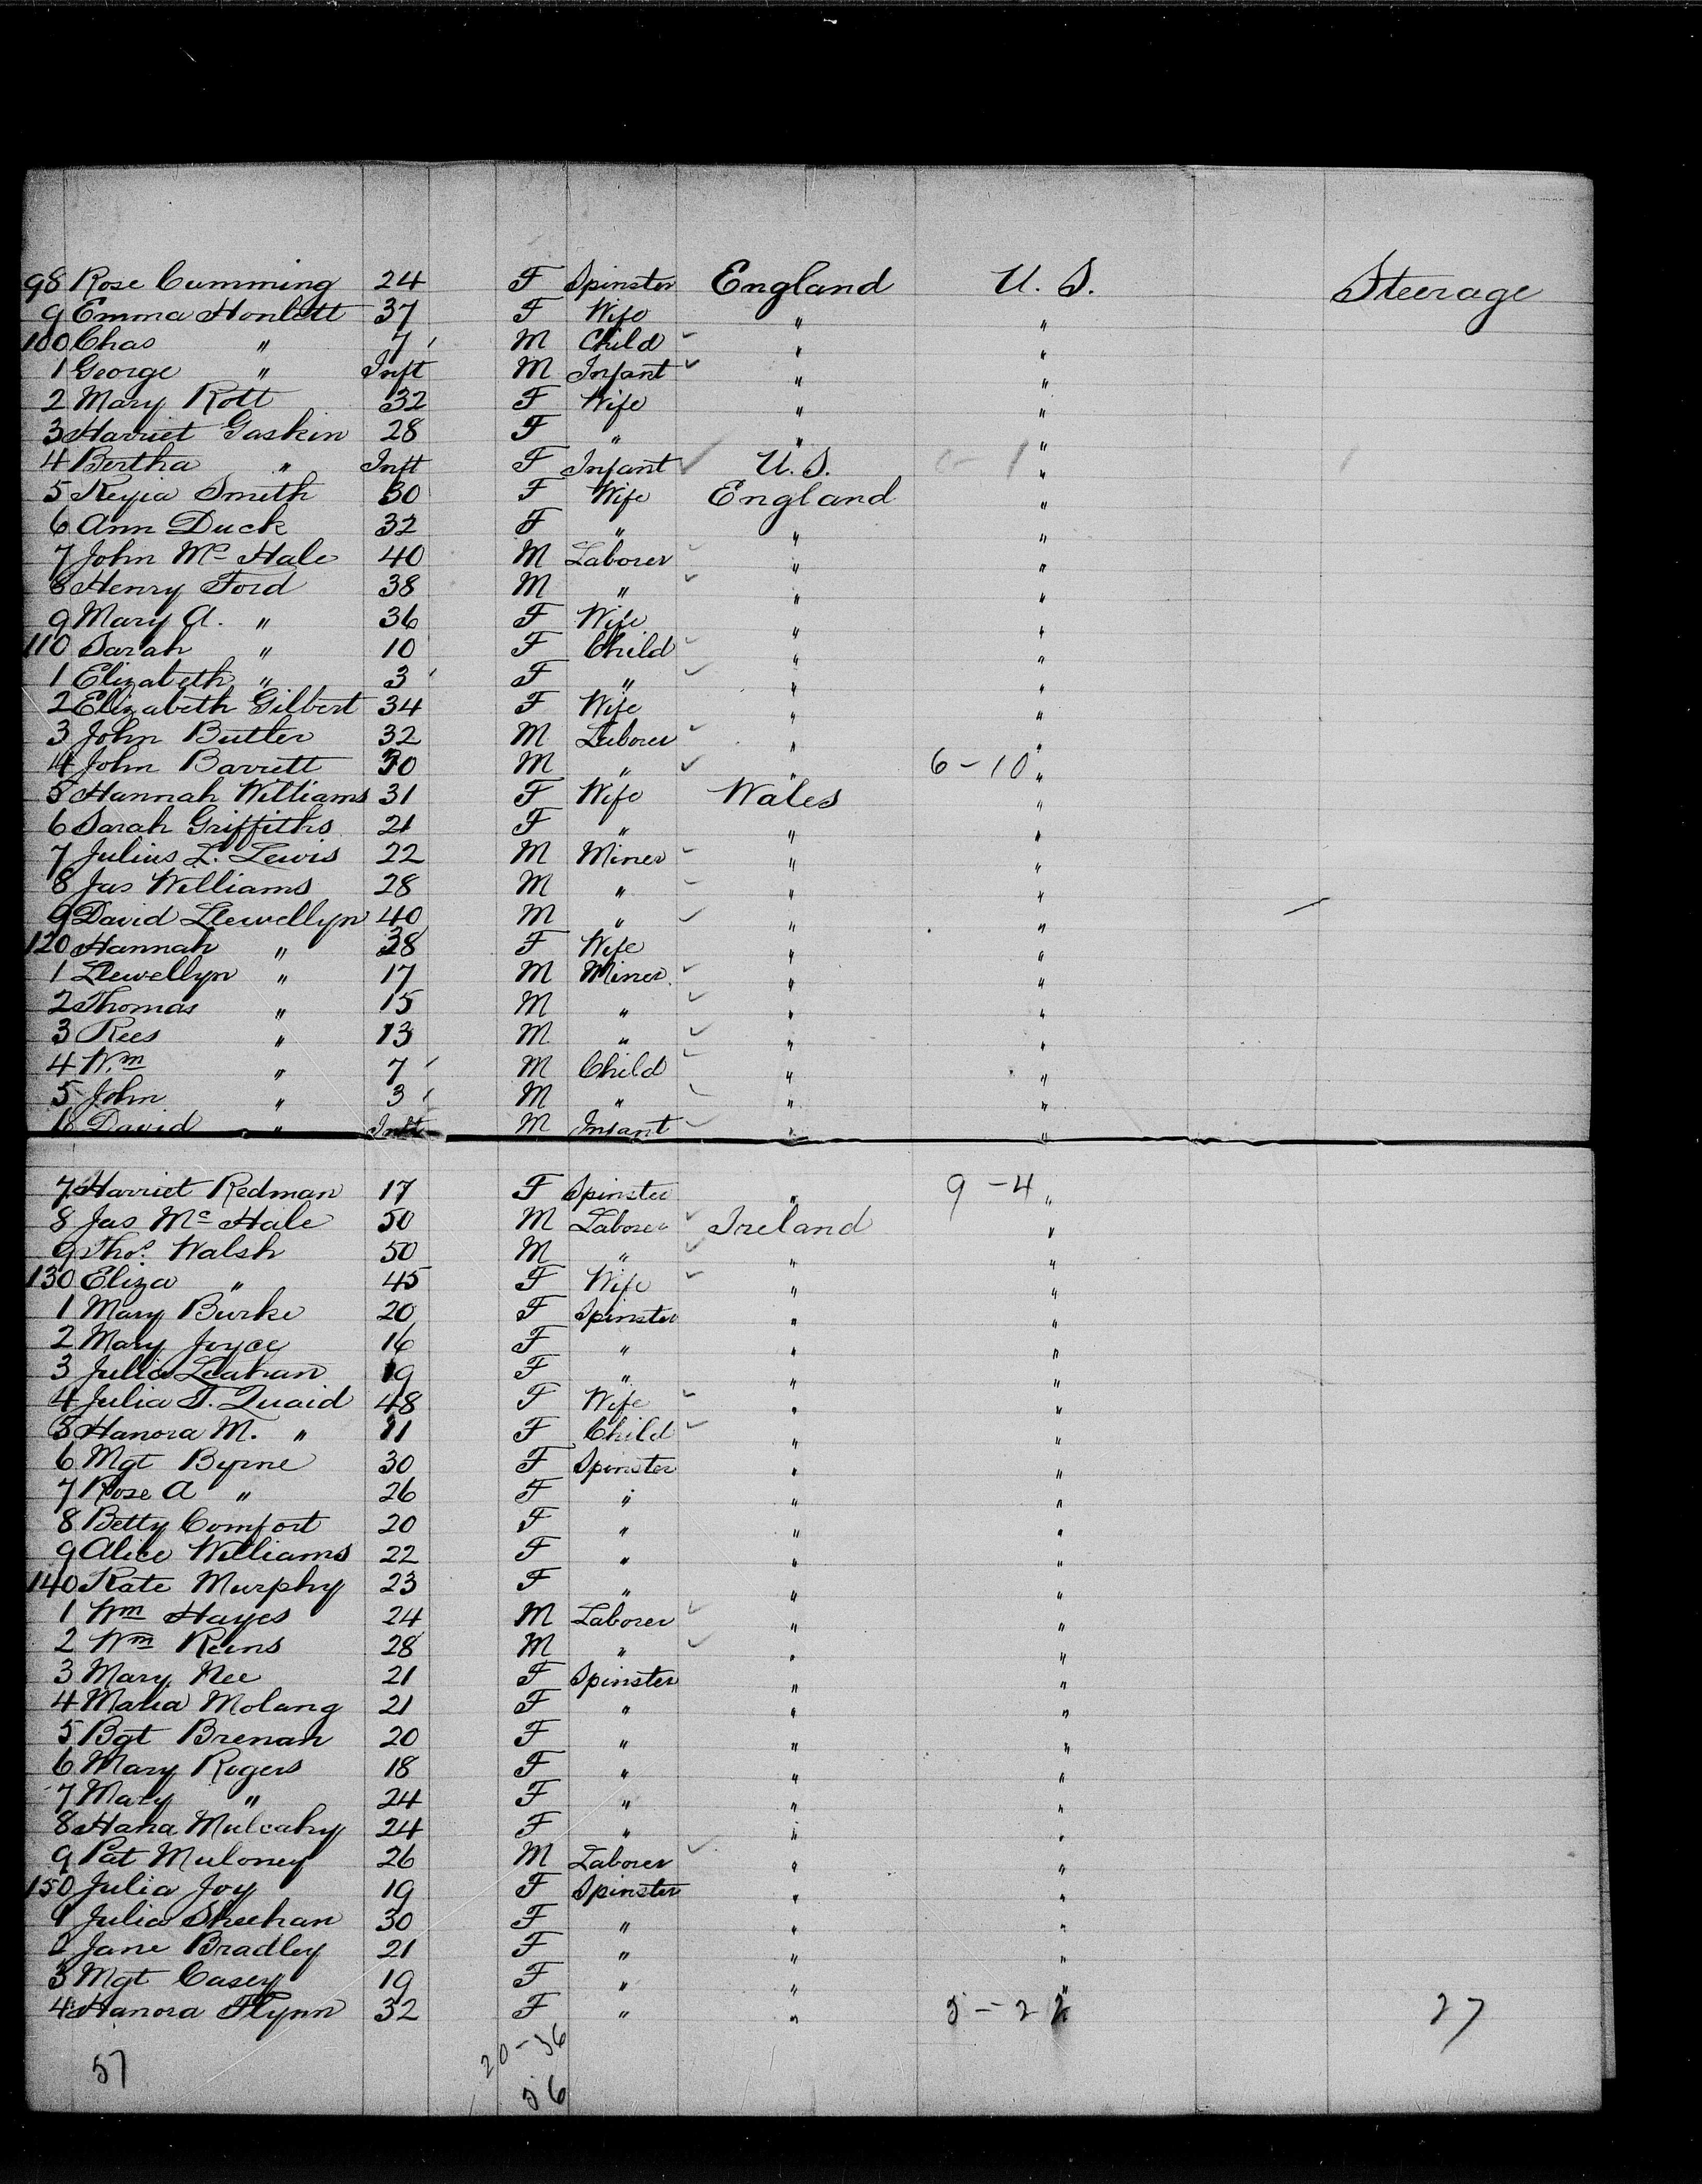 98 Rose Cumming 24 F Spinster England U. S. Steerage
9 Emma Honlett 37 F Wife " "
100 Chas " 7 M Child " "
1 George " Inft M Infant " "
2 Mary Rott 32 F Wife " "
3 Harriet Gaskin 28 F " " "
4 Bertha " Inft F Infant U.S. "
5 Smith 30 F Wife England "
6 Ann Duck 32 F " " "
7 John Mc Hale 40 M Laborer " "
8 Henry Ford 38 M " " "
9 Mary A. " 36 F Wife " "
110 Sarah " 10 F Child " "
1 Elizabeth " 3 F " " "
2 Elizabeth Gilbert 34 F Wife " "
3 John Butler 32 M Laborer " "
4 John Barrett 30 M " " 6-10 "
5 Hannah Williams 31 F Wife Wales "
6 Sarah Griffiths 21 F " " "
7 Julius L. Lewis 22 M Miner " "
8 Jas Williams 28 M " " "
9 David Llewellyn 40 M " " "
120 Hannah " 38 F Wife " "
1 Llewellyn " 17 M Miner " "
2 Thomas " 15 M " " "
3 Rees " 13 M " " "
4 Wm " 7 M Child " "
5 John " 3 M " " "
6 David " Inft M Infant " "
7 Harriet Redman 17 F Spinster " 9-4 "
8 Jas Mc Hale 50 M Laborer Ireland "
9 Thos. Walsh 50 M " " "
130 Eliza " 45 F Wife " "
1 Mary Burke 20 F Spinster " "
2 Mary Joyce 16 F " " "
3 Julia Leahan 19 F " " "
4 Julia T. Quaid 48 F Wife " "
5 Hanora M. " 11 F Child " "
6 Mgt Byrne 30 F Spinster " "
7 Rose A " 26 F " " "
8 Betty Comfort 20 F " " "
9 Alice Williams 22 F " " "
140 Kate Murphy 23 F " " "
1 Wm Hayes 24 M Laborer " "
2 Wm Reins 28 M " " "
3 Mary Nee 21 F Spinster " "
4 Maria Molang 21 F " " "
5 Bgt Brenan 20 F " " "
6 Mary Rogers 18 F " " "
7 Mary " 24 F " " "
8 Hana Mulcahy 24 F " " "
9 Pat Muloney 26 M Laborer " "
150 Julia Joy 19 F Spinster " "
1 Julia Sheehan 30 F " " "
2 Jane Bradley 21 F " " "
3 Mgt Casey 19 F " " "
4 Hanora Flynn 32 F " " 5-22 27
57 20-36
56